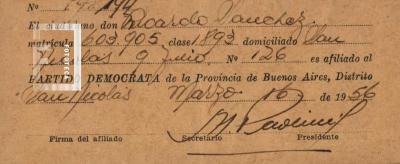 Nº 190194
El ciudadano don Eduardo Sanchez
matrícula 603.905 clase 1893 domiciliado San
Nicolas 9 Julio Nº 126 es afiliado al
PARTIDO DEMOCRATA de la Provincia de Buenos Aires, Distrito
San Nicolás Marzo 16 de 1956
Firma del afiliado Secretario Presidente